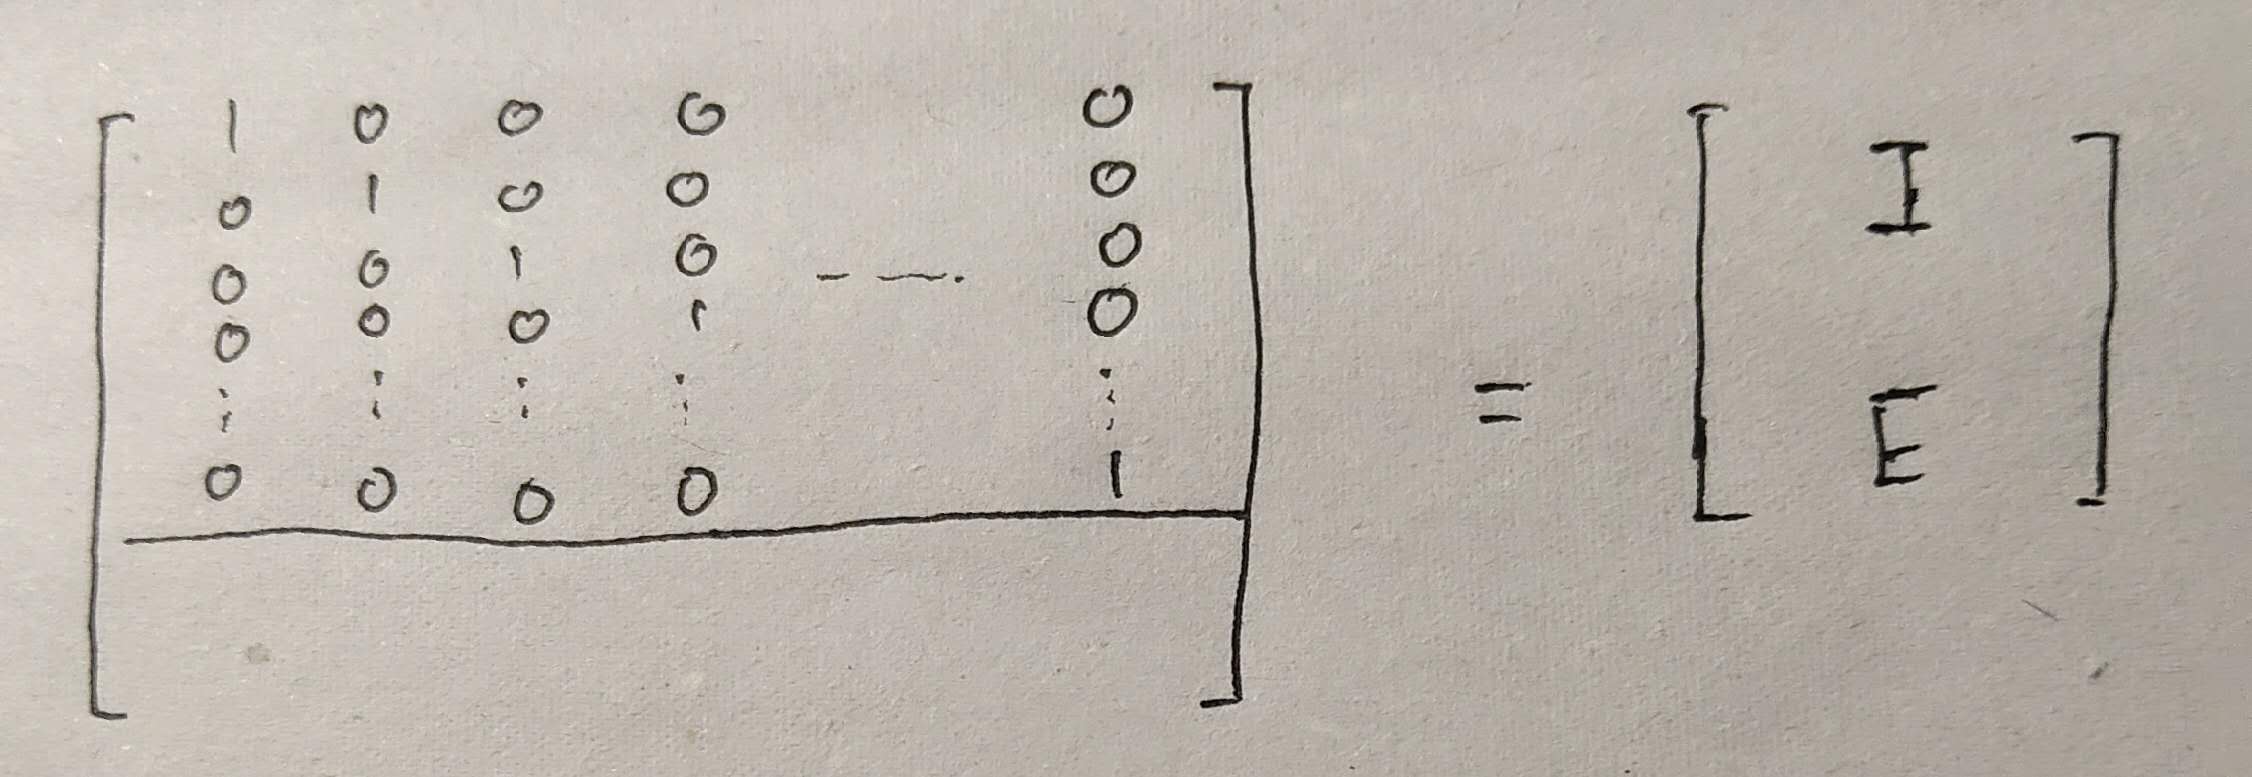 1 0 0 0 0
0 1 0 0 0
0 0 1 0 - - - . 0
0 0 0 1 0
⋮ ⋮ ⋮ ⋮ ⋮
0 0 0 0 1
= [ I
E ]